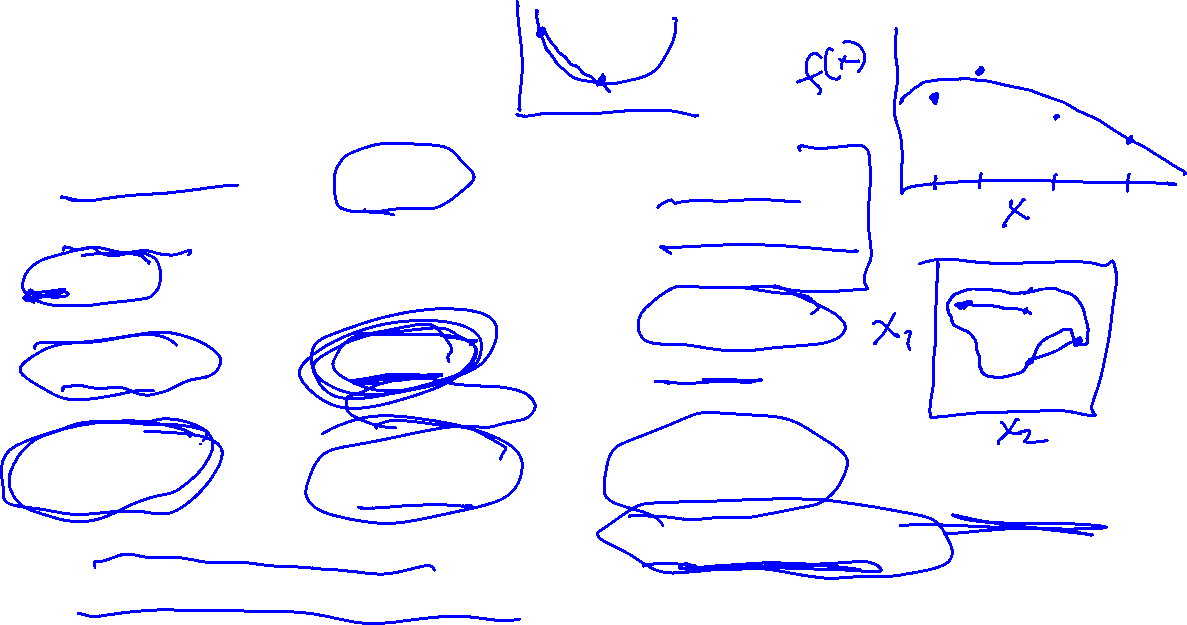 f(x)
x
x₁
x₂